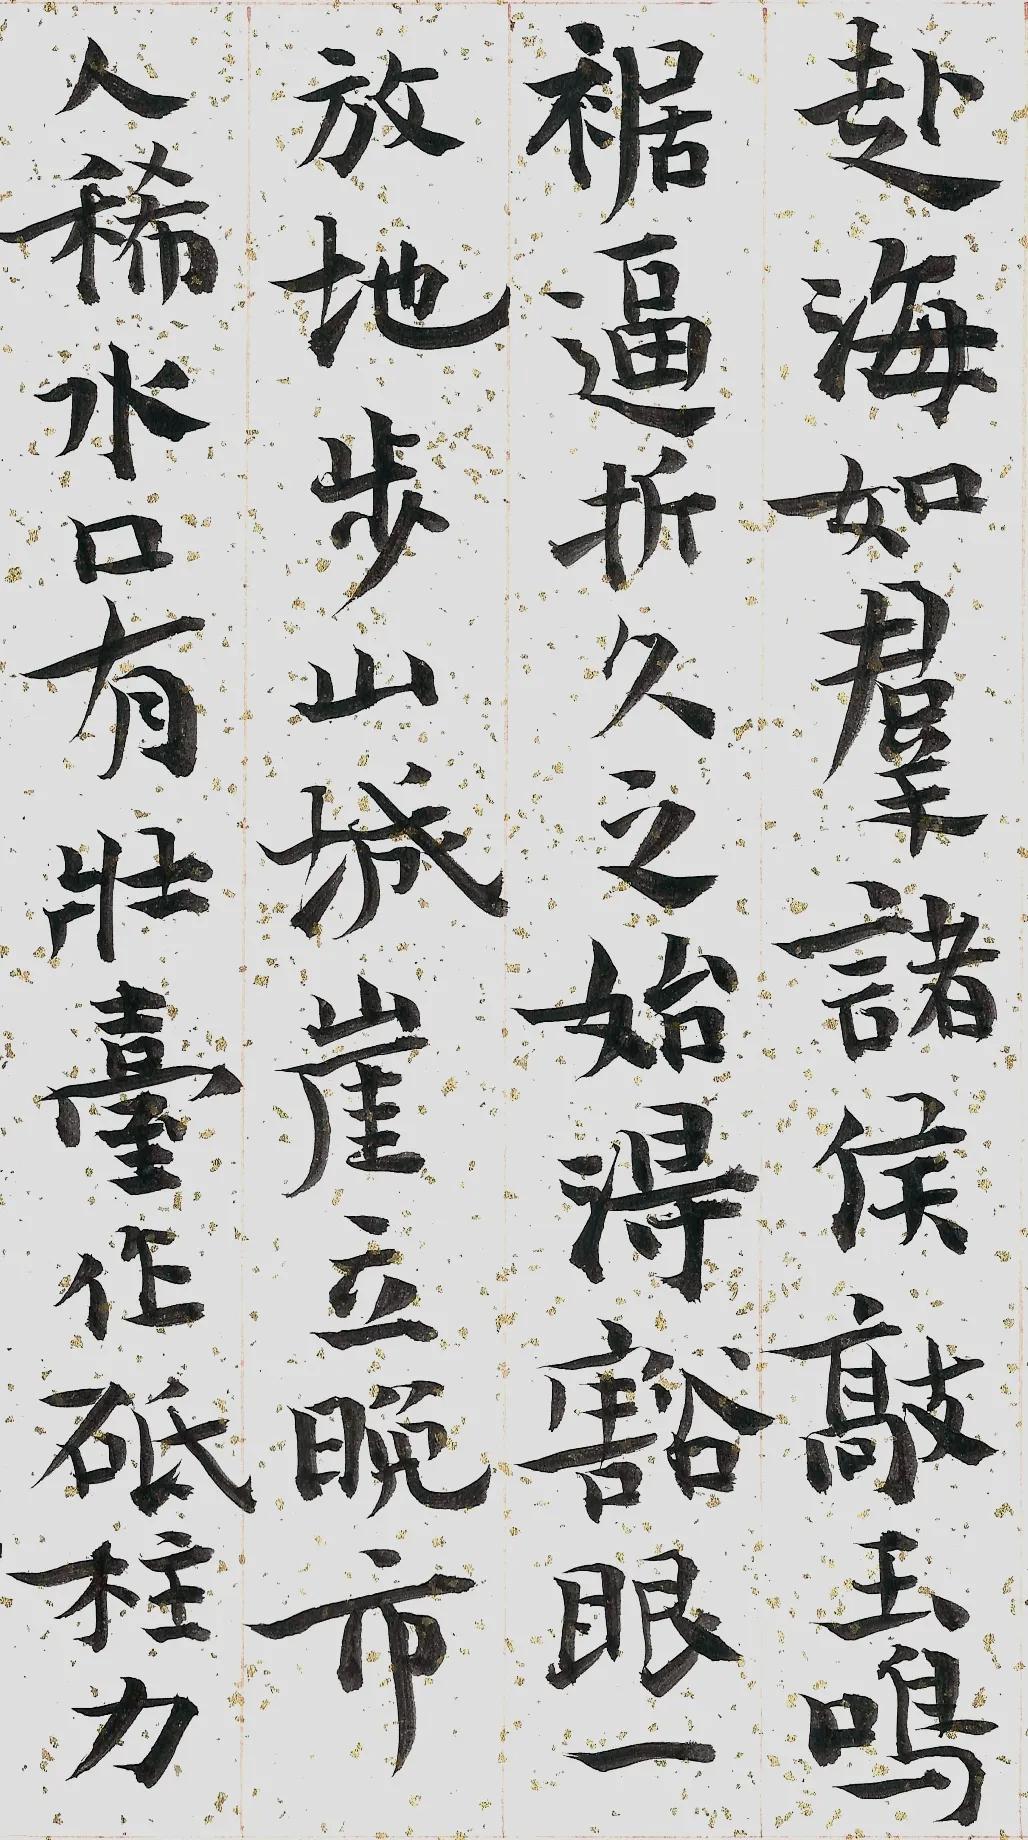 赴海如羣諸侯敲玉鳴
裾逼折久之始得豁眼一
放地步山城崖立晚市
人稀水口有壯臺作砥柱力